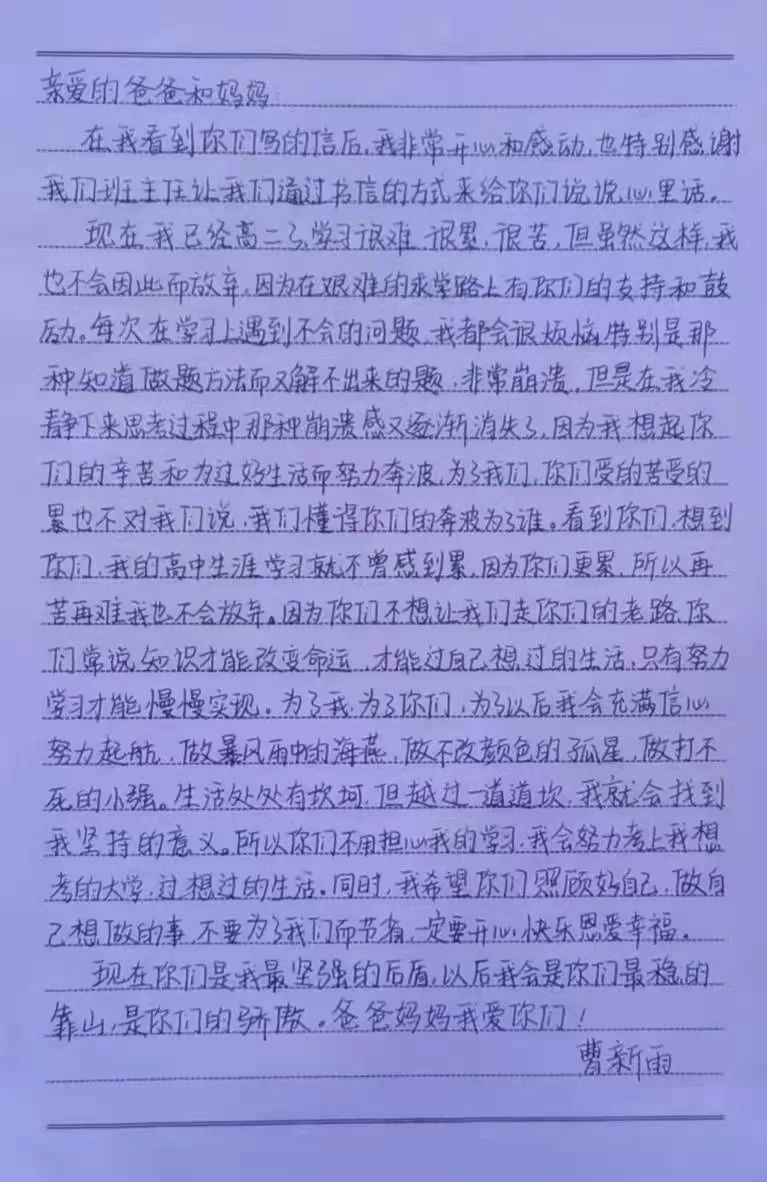 亲爱的爸爸和妈妈
在我看到你们写的信后,我非常开心和感动,也特别感谢
我们班主任让我们通过书信的方式来给你们说说心里话。
现在我已经高二了,学习很难,很累,很苦,但虽然这样,我
也不会因此而放弃,因为在艰难的求学路上有你们的支持和鼓
励。每次在学习上遇到不会的问题,我都会很烦恼,特别是那
种知道做题方法而又解不出来的题,非常崩溃,但是在我冷
静下来思考过程中那种崩溃感又逐渐消失了,因为我想起你
们的辛苦和为过好生活而努力奔波,为了我们,你们受的苦受的
累也不对我们说,我们懂得你们的奔波为了谁。看到你们,想到
你们,我的高中生涯学习就不曾感到累,因为你们更累,所以再
苦再难我也不会放弃。因为你们不想让我们走你们的老路,你
们常说知识才能改变命运,才能过自己想过的生活,只有努力
学习才能慢慢实现。为了我,为了你们,为了以后我会充满信心
努力起航,做暴风雨中的海燕,做不改颜色的孤星,做打不
死的小强。生活处处有坎坷,但越过一道道坎,我就会找到
我坚持的意义。所以你们不用担心我的学习,我会努力考上我想
考的大学,过想过的生活。同时,我希望你们照顾好自己,做自
己想做的事,不要为了我们而节省,一定要开心,快乐恩爱幸福。
现在你们是我最坚强的后盾,以后我会是你们最稳的
靠山,是你们的骄傲。爸爸妈妈我爱你们!
曹新雨